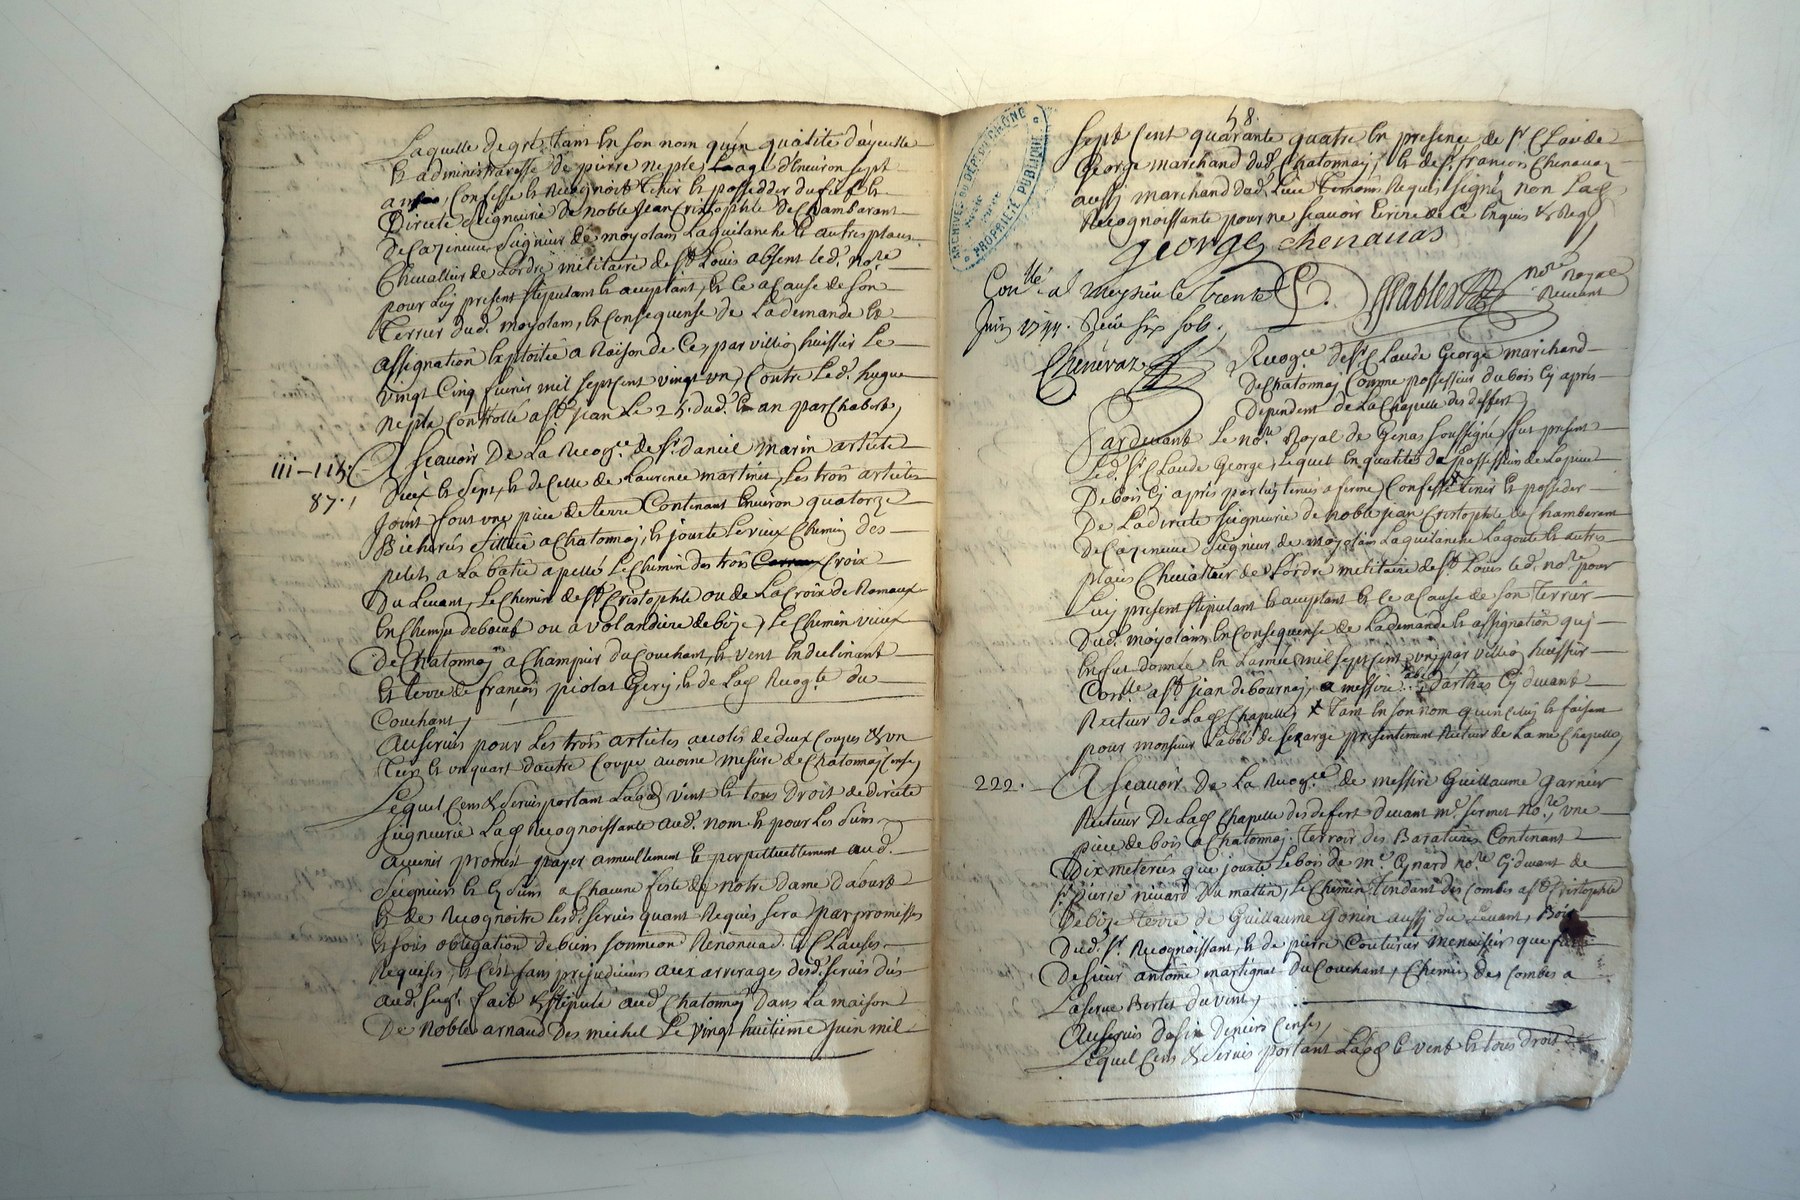 Laquelle de gré tant en son nom qu'en qualite d'ayeulle
et administraresse de pierre neple, aagé d'Environ sept
ans, Confesse et Recognoit tenir et posseder du fief et
Directe seigneurie de noble Jean Cristophle De Chambarant
De Cazeneuve Seigneur de moyolans Laquilanche et autres places
Chevallier de L'ordre militaire de St Louis absent led. nore
pour Luy present stipulant et acceptant, et ce a Cause de son
Terrier dud. moyolam, en Consequense de La demande et
assignation Exploitée a Raison de Ce, par villio huissier Le
vingt Cinq fevrier mil sept Cent vingt un, Contre Led. hugue
neple Controllé a St jean Le 25. dud. an par Chabert,
iii-115. A Scavoir De La Recogce. de Sr. daniel marin article
87. Dixe et Sept, et de Celle de Laurence martinet, Les trois articles
Joint, sont une piece de terre Contenant Environ quatorze
Bicherés Scittuée a Chatonnay, et jouxte Le vieux Chemin des
petits a La batie apellé Le Chemin des trois Croix
Du Levant, Le Chemin de St Cristophle ou de La Croix de Romaux
En Champ de boeuf ou a volandiere de bize, Le Chemin vieux
De Chatonnay a Champier du Couchant, et vent En declinant
Et terre de françois piolat Gery, et de Lad. Recogte. du
Couchant,
Au Servis pour Les trois articles accolés de deux Coupes et un
tiers et un quart d'autre Coupe avoine mesure de Chatonnay Cense,
Lequel Cens et Servis portant Lads vent et tous Droit de directe
Seigneurie Lad. Recognoissante aud. nom et pour Les Siens
a venir promêt payer annuellement et perpetuellement aud.
Seigneurs et Es Siens a Chacune feste de Notre Dame D'aoust
Et de Recognoitre Lesd. Servis quant Requis Sera, par promisses
Et sous obligation de biens Renonciad. et Clauses
Requises, et C'est sans prejudicier aux arrerages desd. Servis dus
aud. Seigr. fait et stipulé aud. Chatonnay Dans La maison
De Noble arnaud Des michel Le vingt huitieme Juin mil
58.
Sept Cent quarante quatre En presence de Sr Claude
George marchand dud. Chatonnay, et de Sr. francois Chenavas
aussy marchand dud. Lieu temoins Requis Signés non Lad.
Recognoissante pour ne Scavoir Ecrire de Ce Enquis et Req.
george chenavas
nore royal
Recevant
Conllé. a Meyrieu le trente
Juin 1744. Receu six sols.
Chenevaz
Recogce de Sr. Claude George marchand
De Chatonnay Comme possesseur du bois Cy apres
Dependent de La Chapelle des deffert,
Pardevant Le nore. Royal de Genas soussigné, fut present
Led. Sr. Claude George, Lequel En qualité de possesseur de La piece
De bois Cy aprés par Luy tenüe a ferme, Confesse tenir et posseder
De La directe Seigneurie de noble Jean Cristophle de Chambarant
De Cazeneuve Seigneur de moyolans Laquilanche Lagoute et autres
places Chevallier de L'ordre militaire de St. Louis led. nore pour
Luy present stipulant et acceptant et ce a Cause de son terrier
Dud. moyolans, En Consequense de La demande et assignation quy
En fut donnée En L'année mil sept Cent vingt un, par villio huissier
Conlle. a St. jean de bournay, a messire abbé Darthas Cy devant
Recteur de Lad. Chapelle, tant En son nom qu'en Celuy et faisant
pour monsieur L'abbé de presentement Recteur de La mes. Chapelle,
222. A Scavoir De La Recogce. de messire Guillaume Garnier
Recteur De Lad. Chapelle des defert devant me. Sermet nore, une
piece de bois a Chatonnay terroir des Baratieres Contenant
Dix meterés que jouxte Le bois de me. Eynard nore. Cy devant de
Sr. pierre nivard Du matin, Le Chemin tendant des Combes a St. Cristophle
De bize terre de Guillaume Gonin aussy du Levant, Bois
Dud. Sr. Recognoissant, et de pierre Couturier menuisier que fut
De Sieur antoine martignat Du Couchant, Chemin des Combes a
La serve Bertet du vent,
Au Servis de Six Deniers Cense,
Lequel Cens et Servis portant Lads. et vent et tous droit de
ARCHIVES DU DÉPT DU RHONE
PROPRIÉTÉ PUBLIQUE